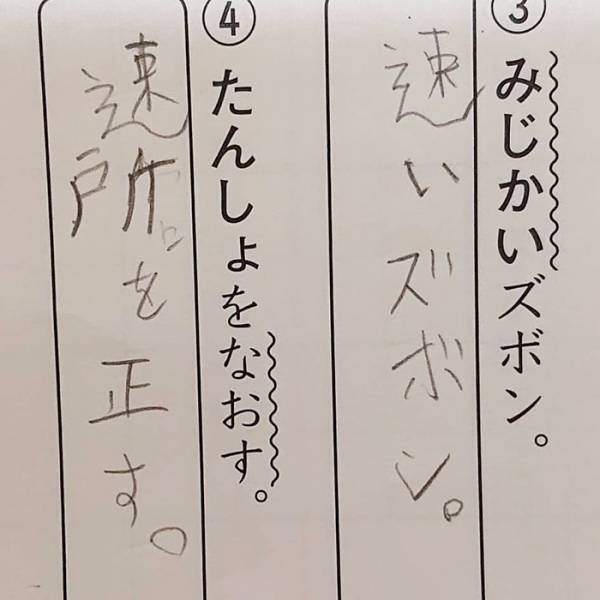 ③
みじかいズボン。
速いズボン。
④
たんしょをなおす。
速所を正す。